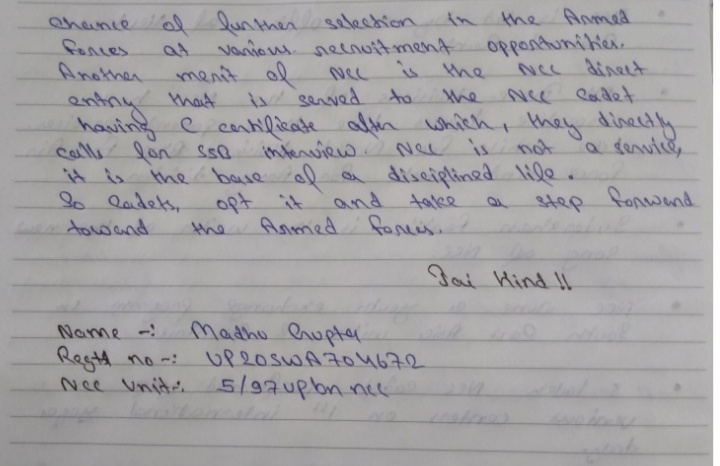 chance of further selection in the Armed
forces at various recruitment opportunities.
Another merit of NCC is the NCC direct
entry that is served to the NCC Cadet
having C certificate after which, they directly
calls for SSB interview. NCC is not a service,
it is the base of a disciplined life.
So Cadets, opt it and take a step forward
toward the Armed forces.
Jai Hind !!
Name -: Madhu Gupta
Regtl no -: UP20SWA704672
NCC Unit -: 5/97 UP bn ncc